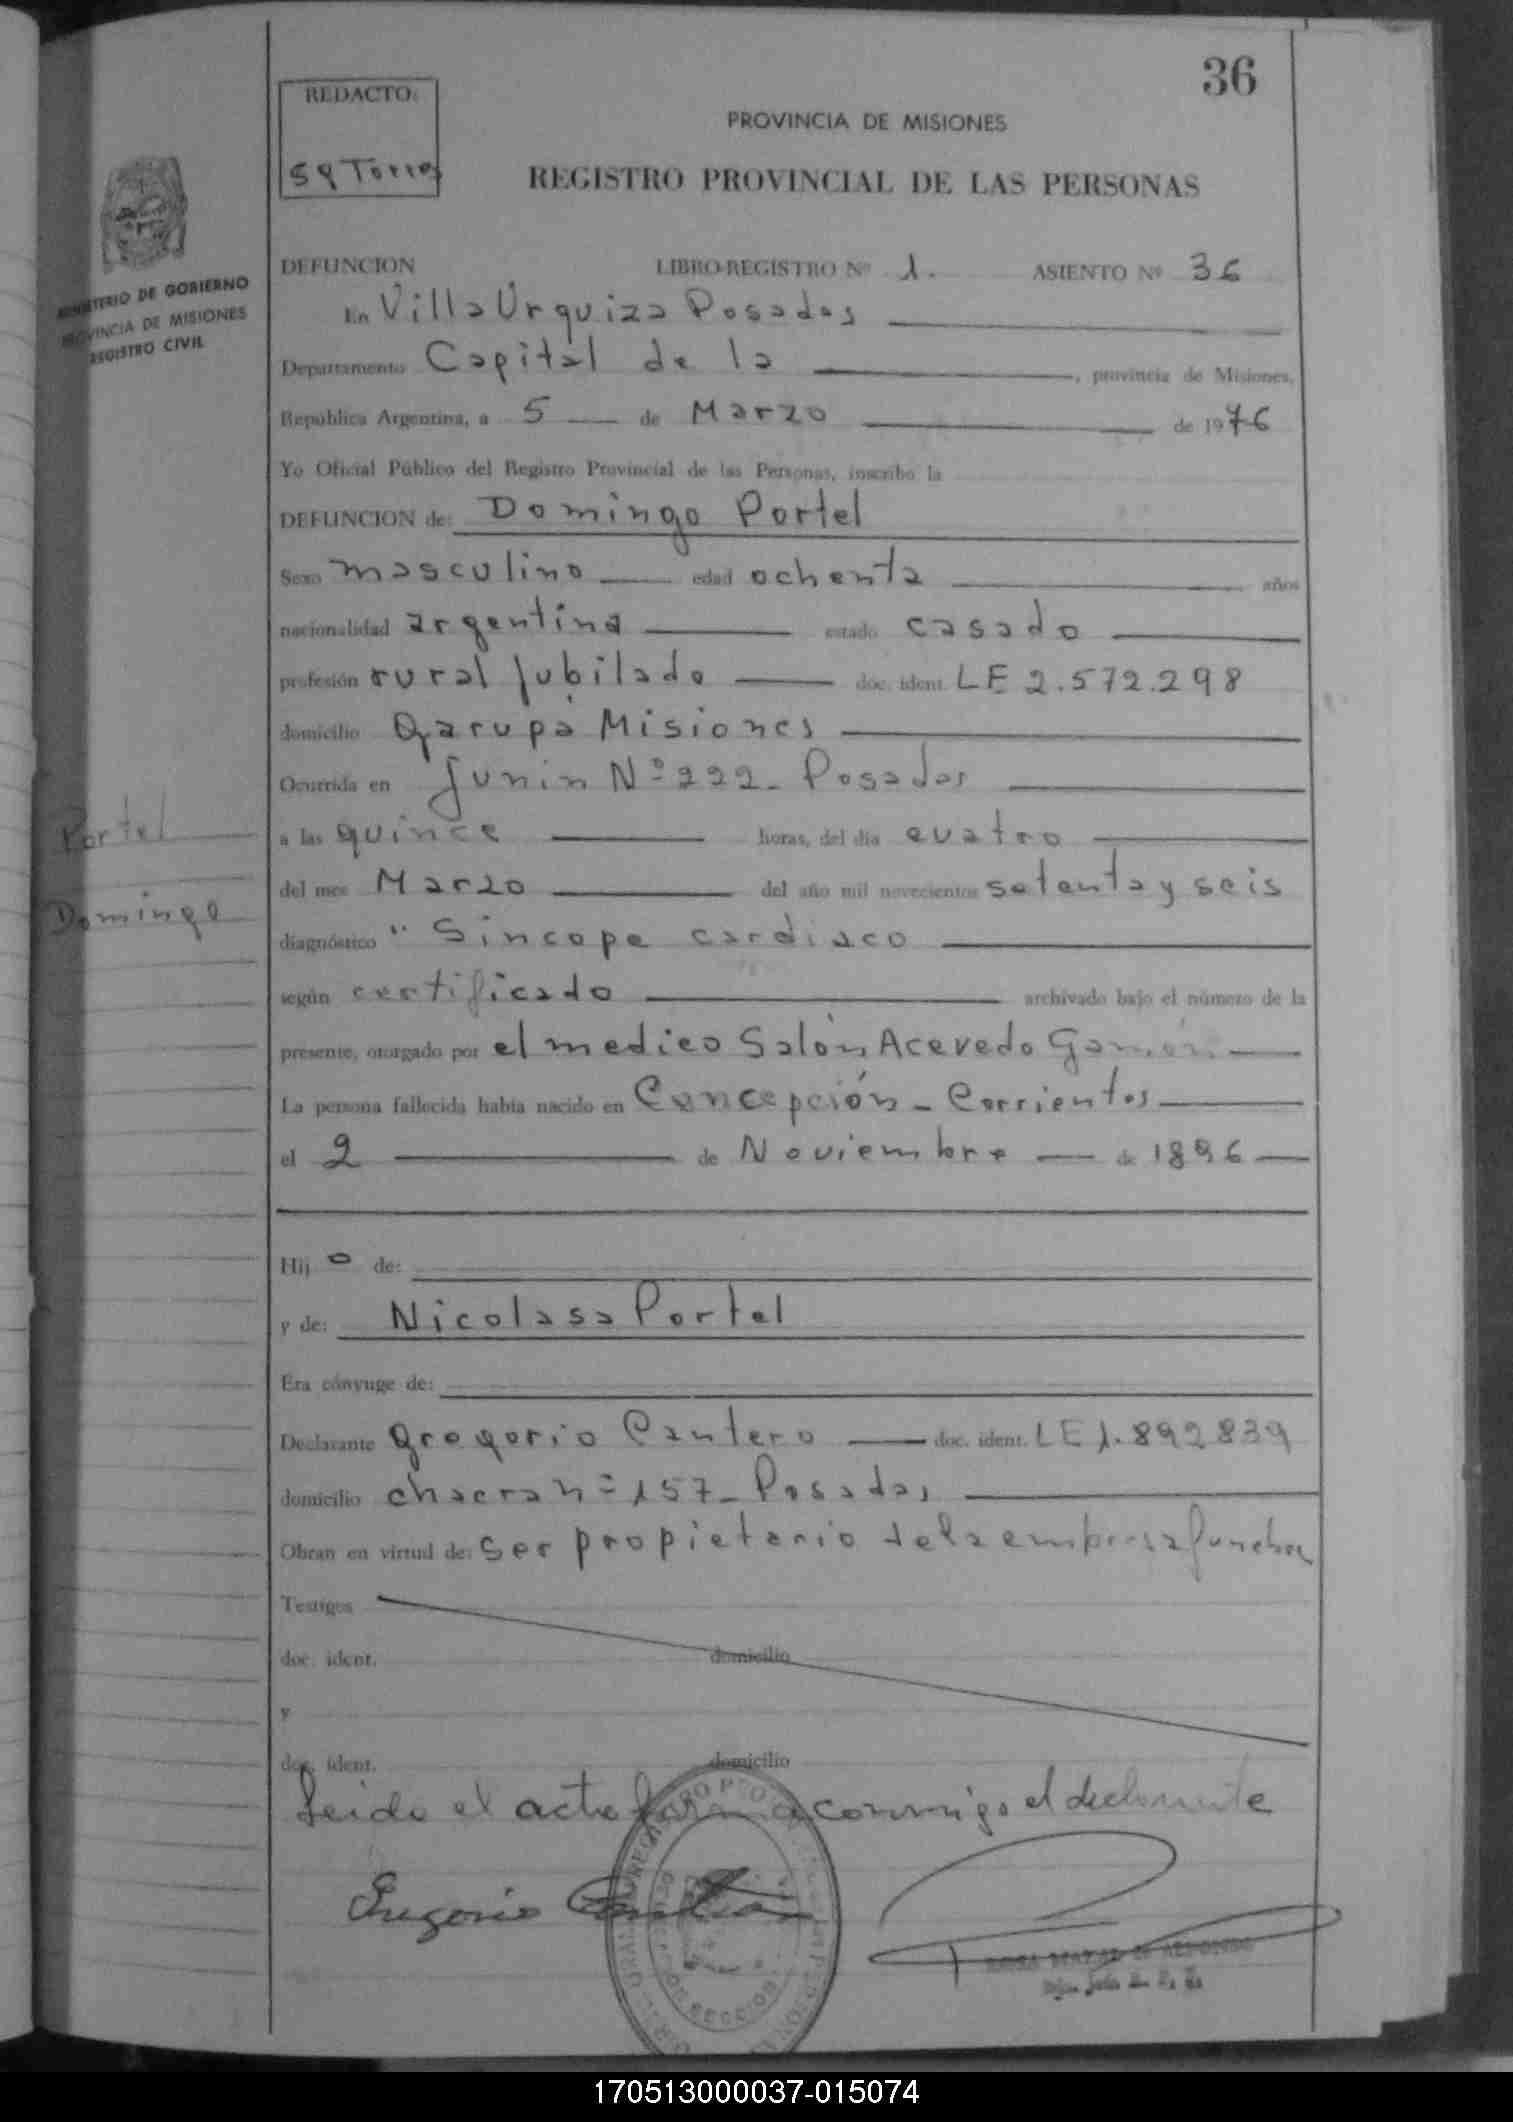 36
REDACTO:
Sq Torres
PROVINCIA DE MISIONES
REGISTRO PROVINCIAL DE LAS PERSONAS
MINISTERIO DE GOBIERNO
PROVINCIA DE MISIONES
REGISTRO CIVIL
DEFUNCION LIBRO-REGISTRO Nº 1. ASIENTO Nº 36
En Villa Urquiza Posadas
Departamento Capital de la , provincia de Misiones,
República Argentina, a 5 de Marzo de 1976
Yo Oficial Público del Registro Provincial de las Personas, inscribo la
DEFUNCION de: Domingo Portel
Sexo masculino edad ochenta años
nacionalidad argentina estado casado
profesión rural jubilado doc. ident. LE 2.572.298
domicilio Garupá Misiones
Ocurrida en Junin Nº 222- Posadas
a las quince horas, del día cuatro
del mes Marzo del año mil novecientos setenta y seis
diagnóstico " Sincope cardiaco
según certificado archivado bajo el número de la
presente, otorgado por el medico Salón Acevedo
La persona fallecida había nacido en Concepción - Corrientes
el 2 de Noviembre de 1896
Hij o de:
y de: Nicolasa Portel
Era cónyuge de:
Declarante Gregorio Cantero doc. ident. LE 1.892839
domicilio chacra nº 157- Posadas
Obran en virtud de: ser propietario de la empresa funebre
Testigos
doc. ident. domicilio
y
doc. ident. domicilio
Leido el acta firma conmigo el declarante
Gregorio Cantero
Portel
Domingo
170513000037-015074